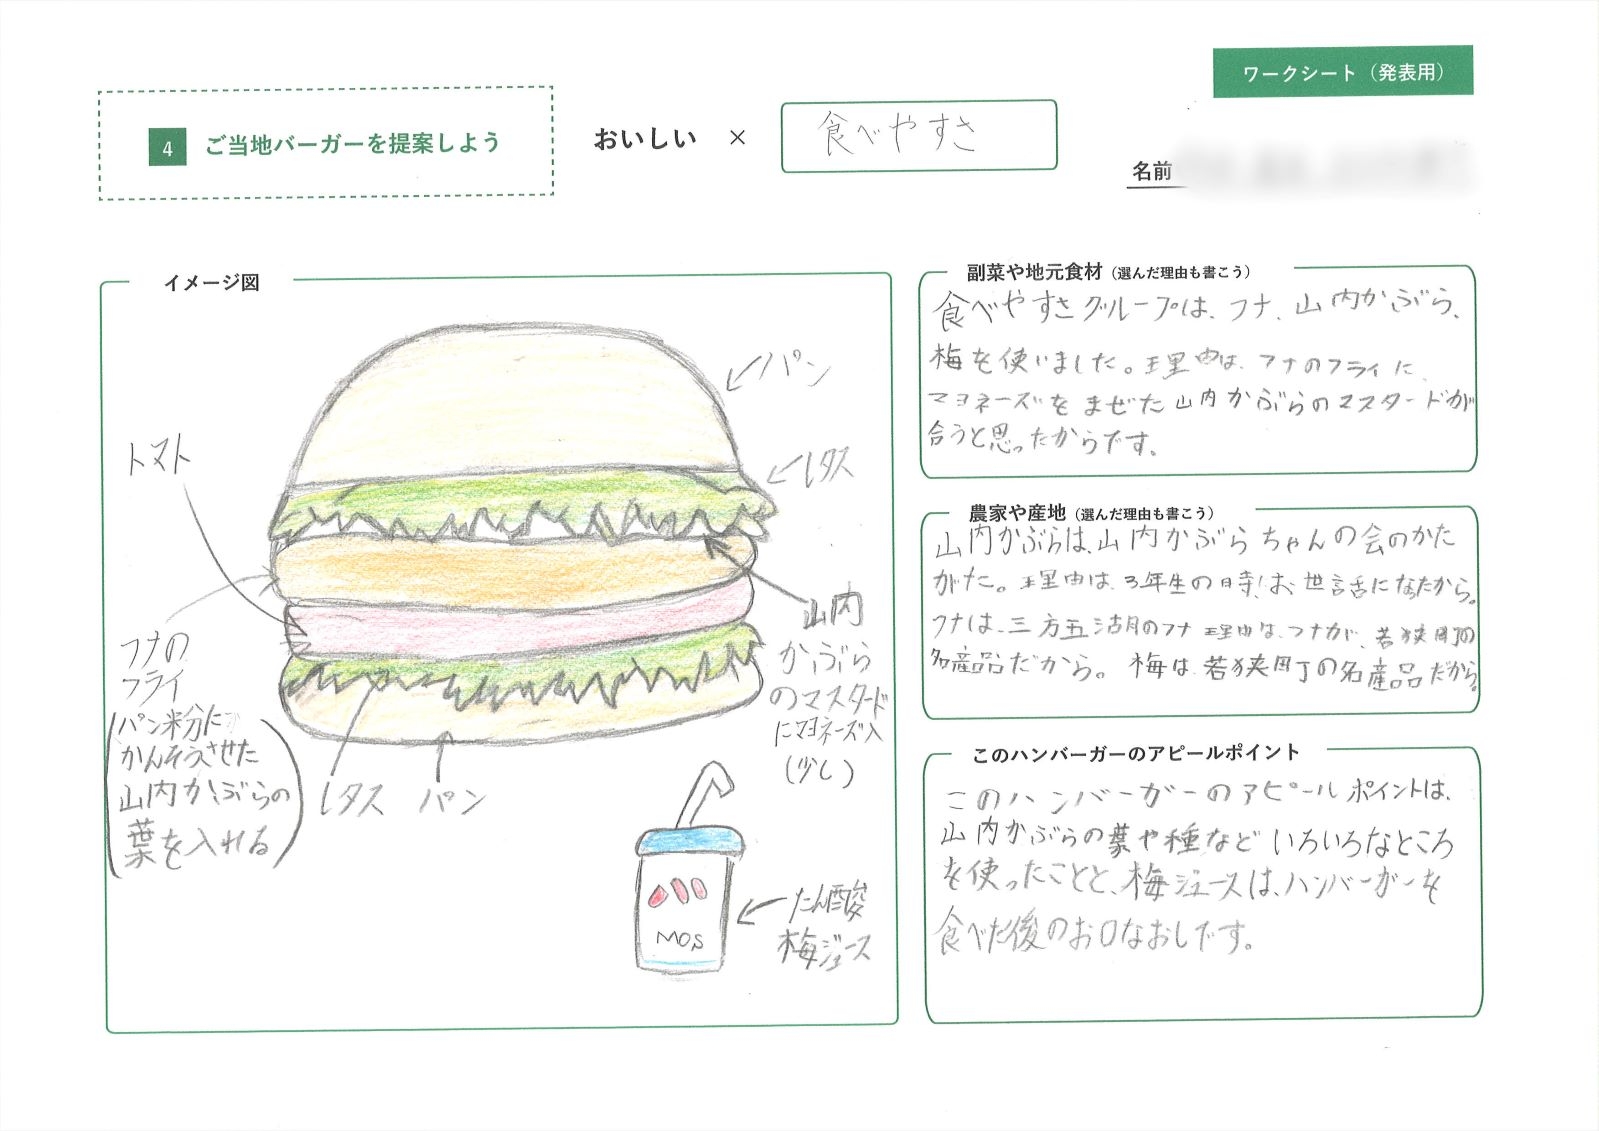 ワークシート（発表用）
4 ご当地バーガーを提案しよう
おいしい × 食べやすさ
名前
イメージ図
パン
レタス
トマト
山内
かぶら
のマスタード
にマヨネーズ入
(少し)
フナの
フライ
(パン粉に
かんそうさせた
山内かぶらの
葉を入れる)
レタス
パン
MOS
たん酸
梅ジュース
副菜や地元食材（選んだ理由も書こう）
食べやすさグループは、フナ、山内かぶら、
梅を使いました。理由は、フナのフライに
マヨネーズをまぜた山内かぶらのマスタードが
合うと思ったからです。
農家や産地（選んだ理由も書こう）
山内かぶらは、山内かぶらちゃんの会のかた
がた。理由は、3年生の時、お世話になったから。
フナは、三方五湖のフナ理由は、フナが、若狭町の
名産品だから。梅は、若狭町の名産品だから。
このハンバーガーのアピールポイント
このハンバーガーのアピールポイントは、
山内かぶらの葉や種などいろいろなところ
を使ったことと、梅ジュースは、ハンバーガーを
食べた後のお口なおしです。